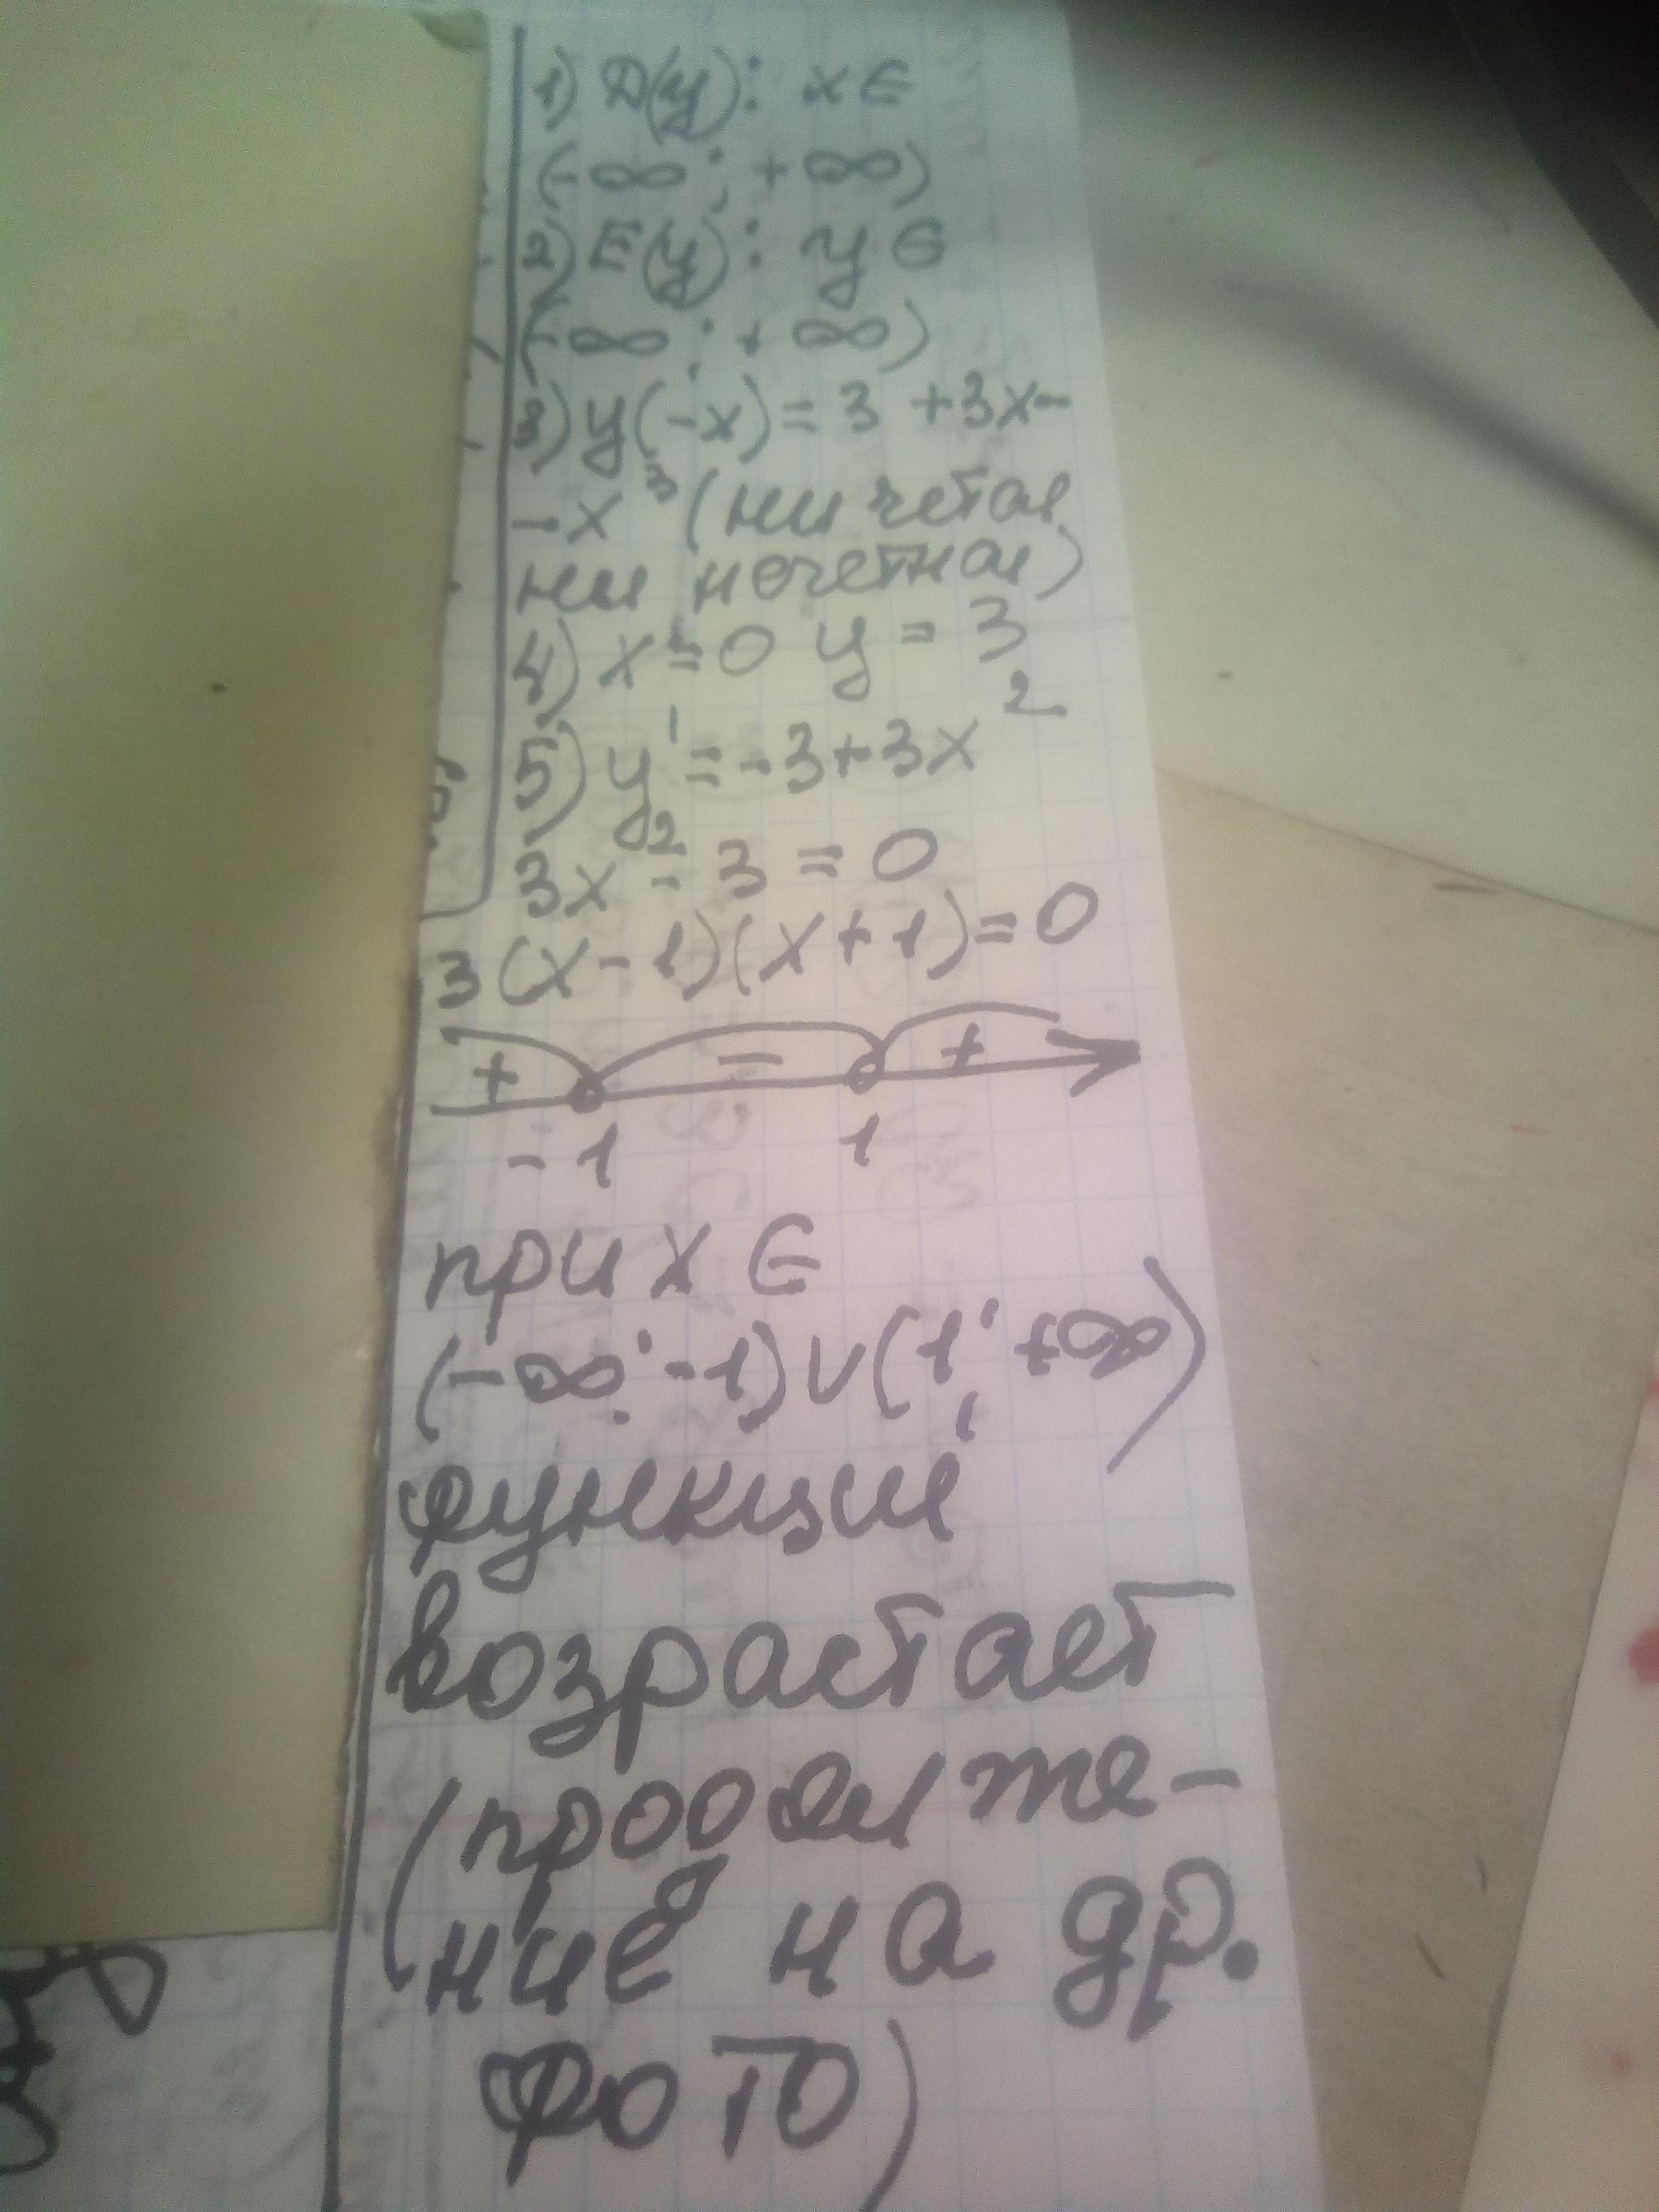 1) D(y): x ∈
(-∞; +∞)
2) E(y): y ∈
(-∞; +∞)
3) y(-x) = 3 + 3x -
- x³ (ни четая
ни нечетная)
4) x = 0 y = 3
5) y' = -3 + 3x²
3x² - 3 = 0
3(x - 1)(x + 1) = 0
+ - +
-1 1
при x ∈
(-∞; -1) ∪ (1; +∞)
функция
возрастает
(продолже-
ние на др.
фото)